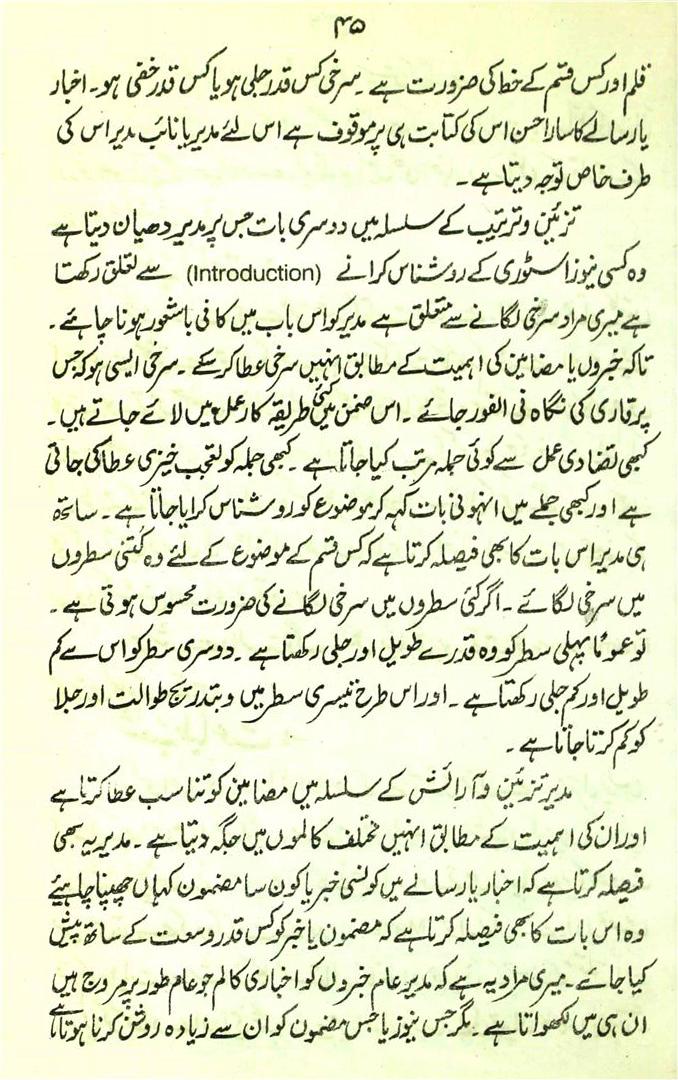 ۴۵
قلم اور کس قسم کے خط کی ضرورت ہے ۔ سرخی کس قدر جلی ہو یا کس قدر خفی ہو ۔ اخبار
یا رسالے کا سارا حسن اس کی کتابت ہی پر موقوف ہے اس لئے مدیر یا نائب مدیر اس کی
طرف خاص توجہ دیتا ہے ۔
تزئین و ترتیب کے سلسلہ میں دوسری بات جس پر مدیر دھیان دیتا ہے
وہ کسی نیوز اسٹوری کے روشناس کرانے (Introduction) سے تعلق رکھتا
ہے میری مراد سرخی لگانے سے متعلق ہے مدیر کو اس باب میں کافی باشعور ہونا چاہئے ۔
تاکہ خبروں یا مضامین کی اہمیت کے مطابق انہیں سرخی عطا کر سکے ۔ سرخی ایسی ہو کہ جس
پر قاری کی نگاہ فی الفور جائے ۔ اس ضمن میں کئی طریقہ کار عمل میں لائے جاتے ہیں ۔
کبھی تضادی عمل سے کوئی جملہ مرتب کیا جاتا ہے ۔ کبھی جملہ کو تعجب خیزی عطا کی جاتی
ہے اور کبھی جملے میں انہونی بات کہہ کر موضوع کو روشناس کرایا جاتا ہے ۔ ساتھ
ہی مدیر اس بات کا بھی فیصلہ کرتا ہے کہ کس قسم کے موضوع کے لئے وہ کتنی سطروں
میں سرخی لگائے ۔ اگر کئی سطروں میں سرخی لگانے کی ضرورت محسوس ہوتی ہے ۔
تو عموماً پہلی سطر کو وہ قدرے طویل اور جلی رکھتا ہے ۔ دوسری سطر کو اس سے کم
طویل اور کم جلی رکھتا ہے ۔ اور اس طرح تیسری سطر میں و بتدریج طوالت اور جلا
کو کم کرتا جاتا ہے ۔
مدیر تزئین و آرائش کے سلسلہ میں مضامین کو تناسب عطا کرتا ہے
اور ان کی اہمیت کے مطابق انہیں مختلف کالموں میں جگہ دیتا ہے ۔ مدیر یہ بھی
فیصلہ کرتا ہے کہ اخبار یا رسالے میں کونسی خبر یا کون سا مضمون کہاں چھپنا چاہیئے
وہ اس بات کا بھی فیصلہ کرتا ہے کہ مضمون یا خبر کو کس قدر وسعت کے ساتھ پیش
کیا جائے ۔ میری مراد یہ ہے کہ مدیر عام خبروں کو اخباری کالم جو عام طور پر مروج ہیں
ان ہی میں لکھواتا ہے ۔ مگر جس نیوز یا جس مضمون کو ان سے زیادہ روشن کرنا ہوتا ہے